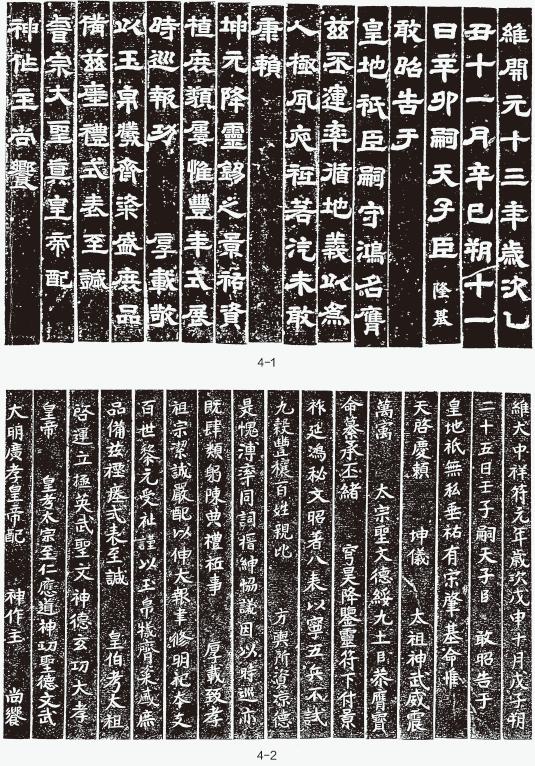 維開元十三年歲次乙
丑十一月辛巳朔十一
日辛卯嗣天子臣隆基
敢昭告于
皇地祇臣嗣守鴻名膺
茲丕運率循地義以為
人極夙夜祗若汔未敢
康賴
坤元降靈錫之景祐資
植庶類屢惟豐年式展
時巡報功 厚載敬
以玉帛犧齊粢盛庶品
備茲瘞禮式表至誠
睿宗大聖真皇帝配
神作主尚饗
4-1
維大中祥符元年歲次戊申十月戊子朔
二十五日壬子嗣天子臣 敢昭告于
皇地祇無私垂祐有宋肇基命惟
天啓慶賴 坤儀 太祖神武威震
萬寓 太宗聖文德綏九土臣恭膺寶
命纂承丕緒 穹昊降鑒靈符下付景
祚延鴻秘文昭著八表以寧五兵不試
九穀豐穰百姓親比 方輿所資涼德
是愧溥率同詞搢紳協議因以時巡亦
既肆類躬陳典禮祗事 厚載致孝
祖宗潔誠嚴配以伸大報聿修明祀本支
百世黎元受祉謹以玉帛犧齊粢盛庶
品備茲禋瘞式表至誠 皇伯考太祖
啓運立極英武聖文神德玄功大孝
皇帝 皇考太宗至仁應道神功聖德文武
大明廣孝皇帝配 神作主 尚饗
4-2